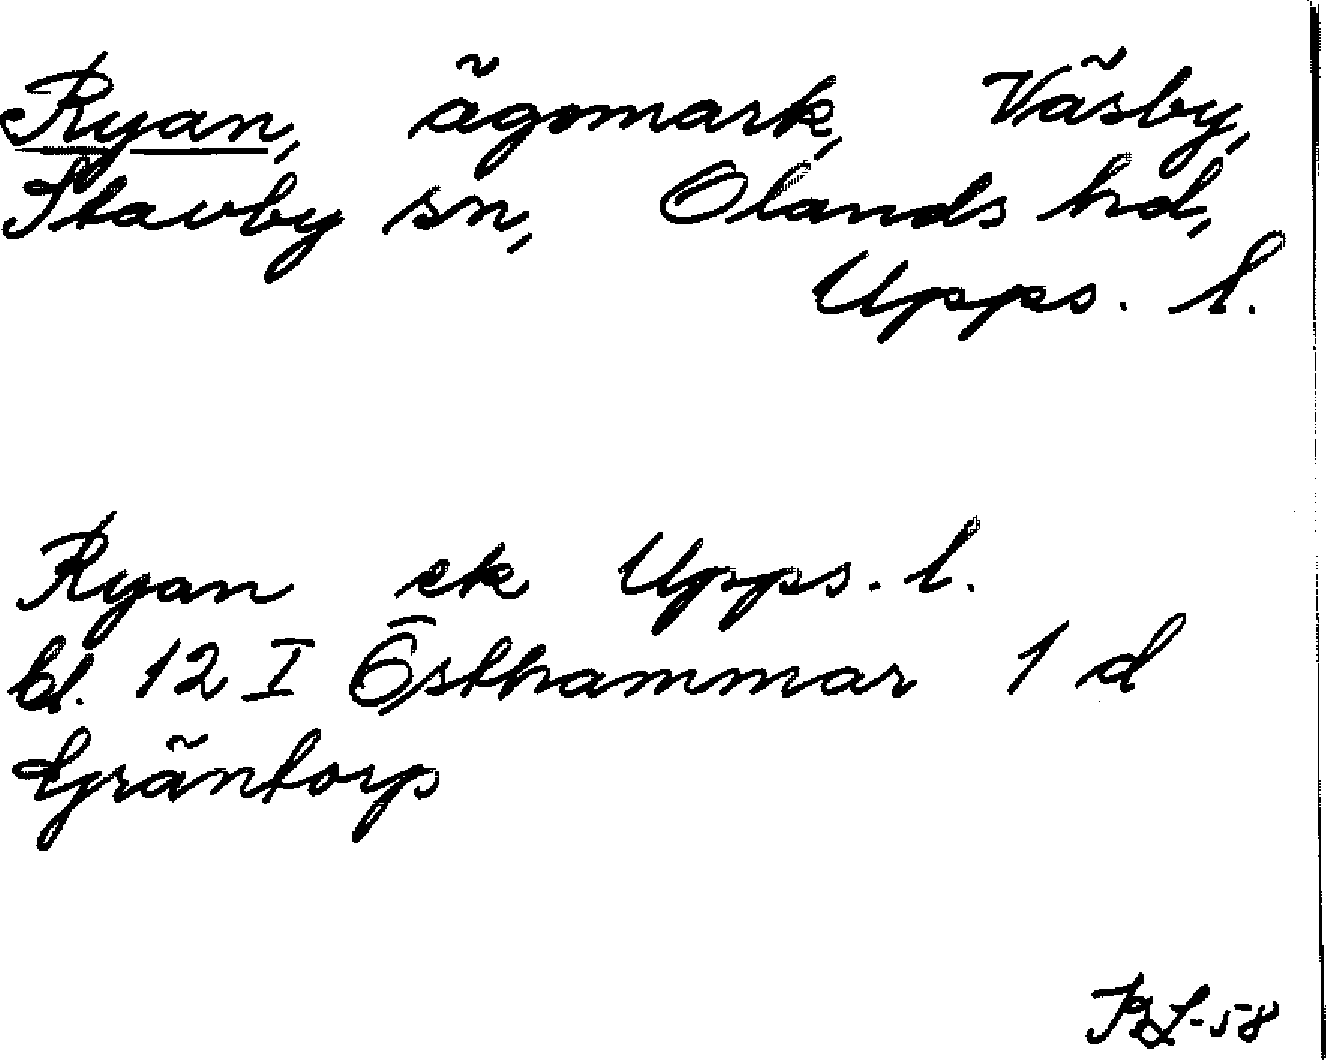 Ryan, ägomark, Väsby,
Stavby sn, Olands hd,
Upps. l.
Ryan ek Upps. l.
bl. 12 I Östhammar 1 d
Gräntorp
-58